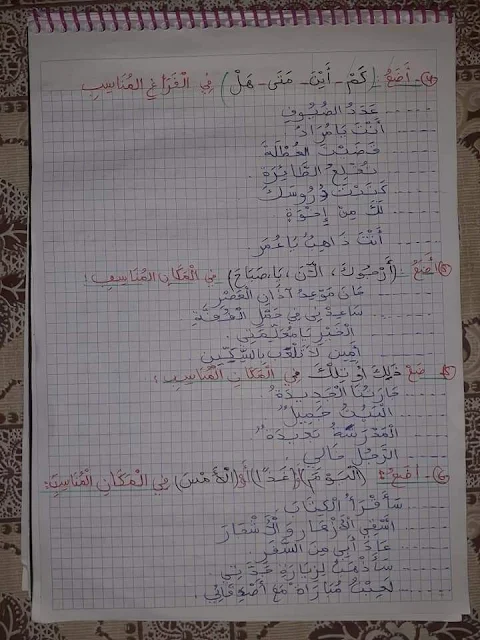 4- أَضَعُ (كَمْ - أَيْنَ - مَتَى - هَلْ) فِي الْفَرَاغِ الْمُنَاسِبِ
------ عَدَدُ الضُّيُوفِ
------ أَنْتَ يَا مُرَادُ
------ قَضَيْتَ الْعُطْلَةَ
------ تُقْلِعُ الطَّائِرَةُ
------ كَتَبْتَ دُرُوسَكَ
------ لَكَ مِنْ إِخْوَةٍ
------ أَنْتَ ذَاهِبٌ يَا عُمَرُ
أَضَعُ: (أَرْجُوكَ، الْآنَ، يَا صَبَاحُ) فِي الْمَكَانِ الْمُنَاسِبِ:
------ حَانَ مَوْعِدُ آذَانِ الْعَصْرِ
------ سَاعِدْنِي فِي حَمْلِ الْقُفَّةِ
------ الْخَيْرِ يَا مُعَلِّمَتِي.
------ أَمِين لَا تَلْعَبْ بِالسِّكِّينِ
ضَعْ ذَلِكَ أَوْ تِلْكَ فِي الْمَكَانِ الْمُنَاسِبِ:
------ جَارَتُنَا الْجَدِيدَةُ
------ الْبَيْتُ جَمِيلٌ
------ الْمَدْرَسَةُ جَدِيدَةٌ
------ الرَّجُلُ خَالِي.
6- أَضَعُ: (الْيَوْمَ) أَوْ (غَدًا) أَوْ (الْأَمْسَ) فِي الْمَكَانِ الْمُنَاسِبِ:
------ سَأَقْرَأُ الْكِتَابَ.
------ أَسْقِي الْأَزْهَارَ وَ الْأَشْجَارَ
------ عَادَ أَبِي مِنَ السَّفَرِ.
------ سَأَذْهَبُ لِزِيَارَةِ جَدَّتِي.
------ لَعِبْتُ مُبَارَاةً مَعَ أَصْدِقَائِي.